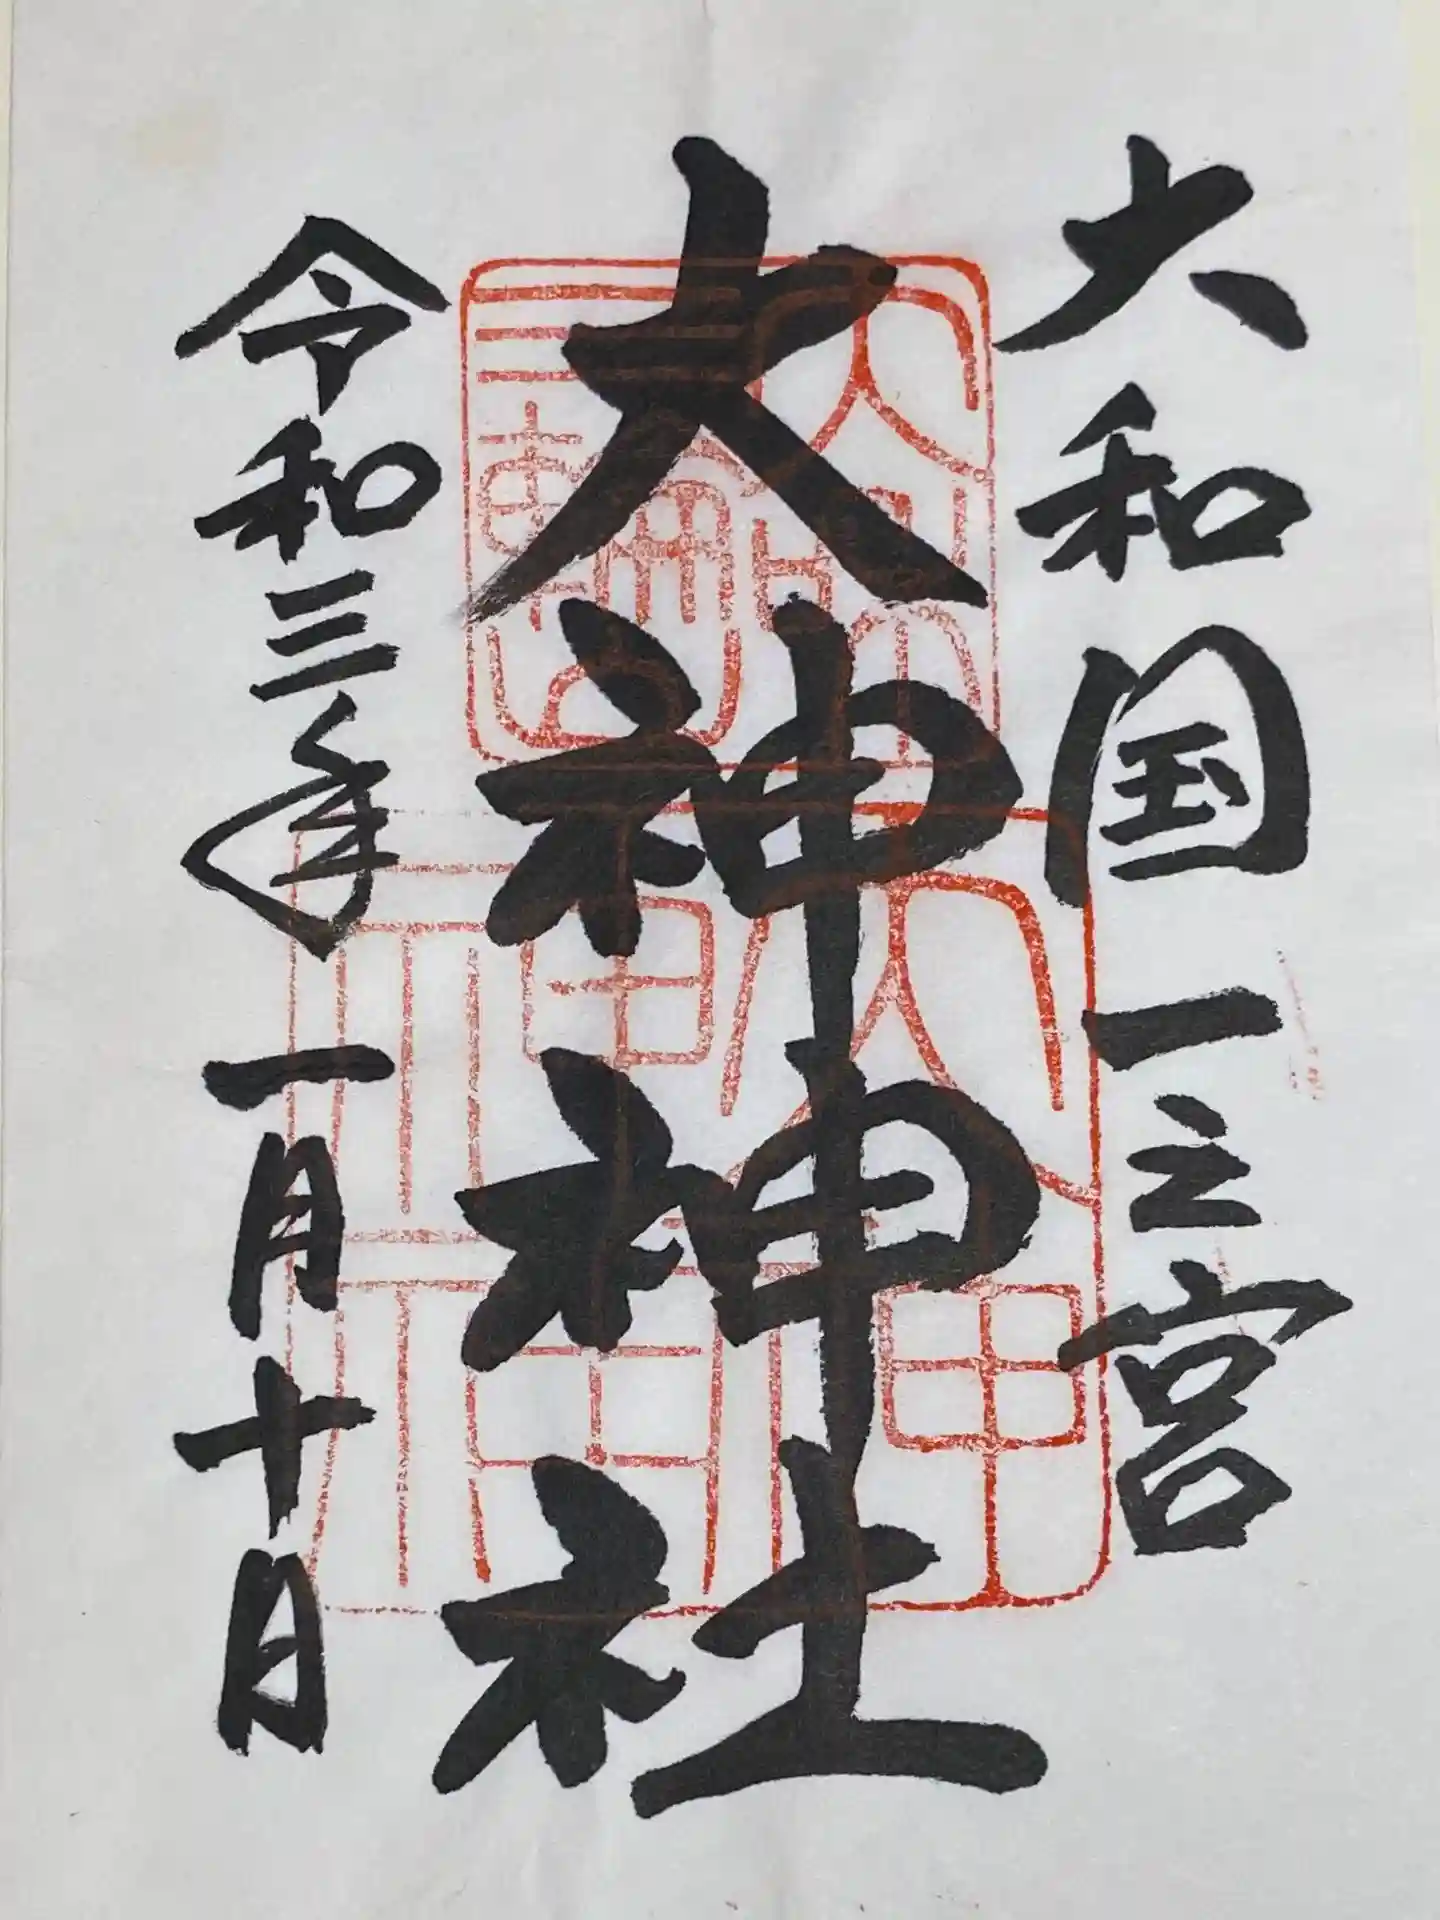 大和国一之宮
大神神社
令和三年一月十日